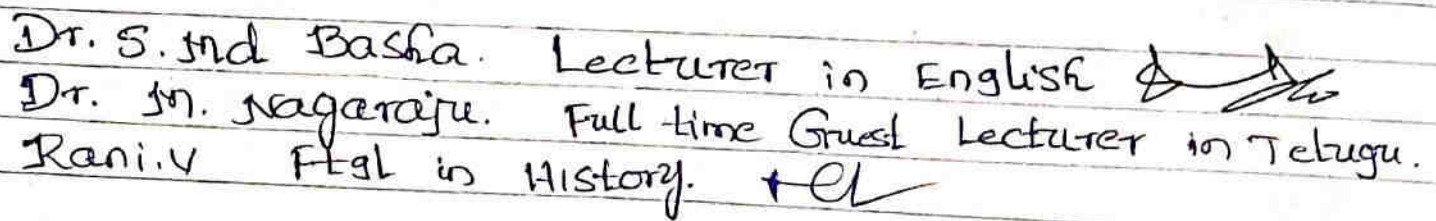 Dr. S. Md Basha. Lecturer in English
Dr. M. Nagaraju. Full time Guest Lecturer in Telugu.
Rani.V Ftgl in History.